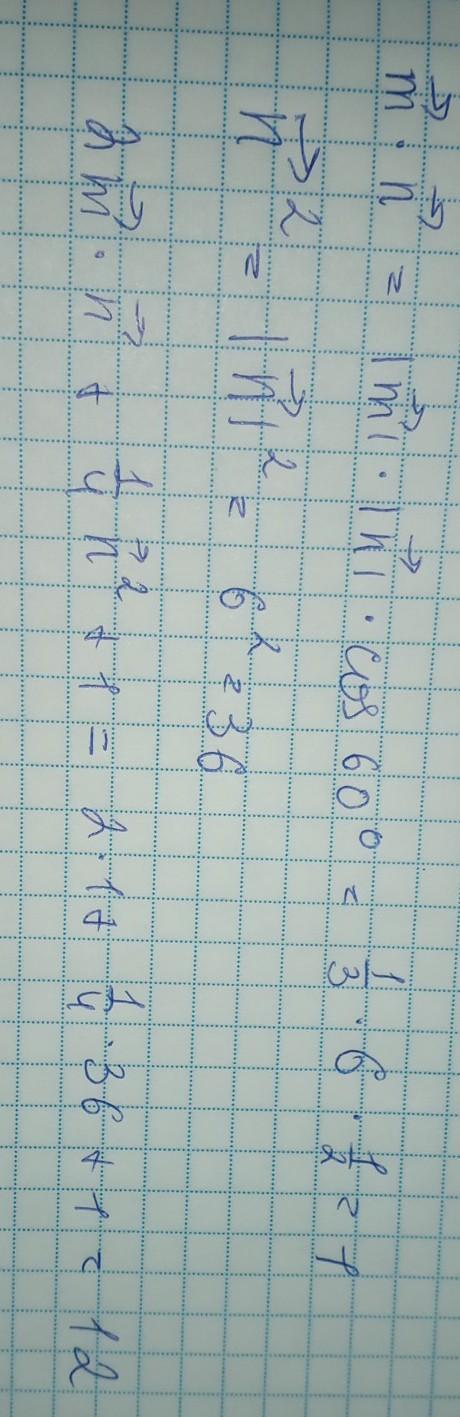 m⃗ · n⃗ = |m⃗| · |n⃗| · cos 60° = 1/3 · 6 · 1/2 = 1
n⃗² = |n⃗|² = 6² = 36
2m⃗ · n⃗ + 1/4 n⃗² + 1 = 2·1 + 1/4 · 36 + 1 = 12